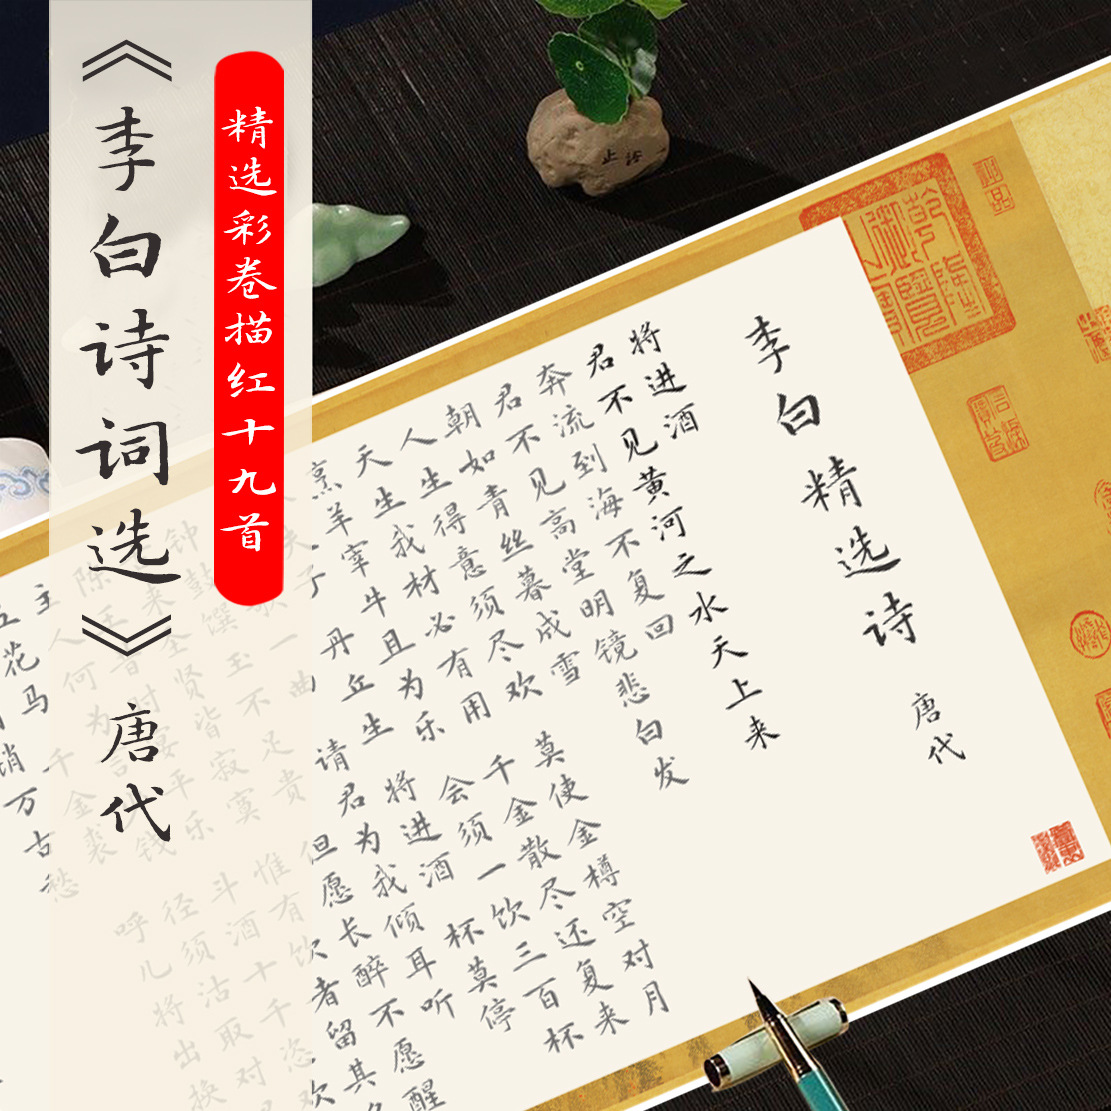 《李白诗词选》唐代
精选彩卷描红十九首
李白精选诗
唐代
将进酒
君不见黄河之水天上来
奔流到海不复回
君不见高堂明镜悲白发
朝如青丝暮成雪
人生得意须尽欢 莫使金樽空对月
天生我材必有用 千金散尽还复来
烹羊宰牛且为乐 会须一饮三百杯
夫子 丹丘生 将进酒 杯莫停
歌一曲 请君为我倾耳听
钟鼓馔玉不足贵 但愿长醉不愿醒
来圣贤皆寂寞 惟有饮者留其名
陈王昔时宴平乐 斗酒十千恣欢
主人何为言 钱 径须沽取对
五花马 千金裘 呼儿将出换
销万古愁